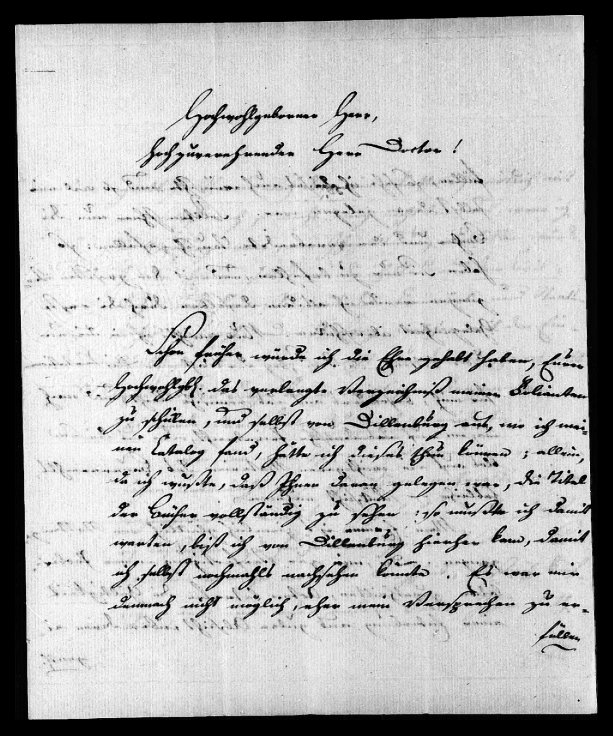 Hochwohlgeborner Herr,
Hochzuverehrender Herr Doctor!
Schon früher würde ich die Ehre gehabt haben, Euer
Hochwohlgb. das verlangte Verzeichniß meiner
zu schicken, und selbst von Dillenburg aus, wo ich mei-
nen Catalog fand, hätte ich dieses thun können; allein,
da ich wußte, daß Ihnen daran gelegen war, die Titel
der Bücher vollständig zu sehen: so mußte ich damit
warten, biß ich von Dillenburg hierher kam, damit
ich selbst nochmahls nachsehen könnte. Es war mir
demnach nicht möglich, eher mein Versprechen zu er-
füllen